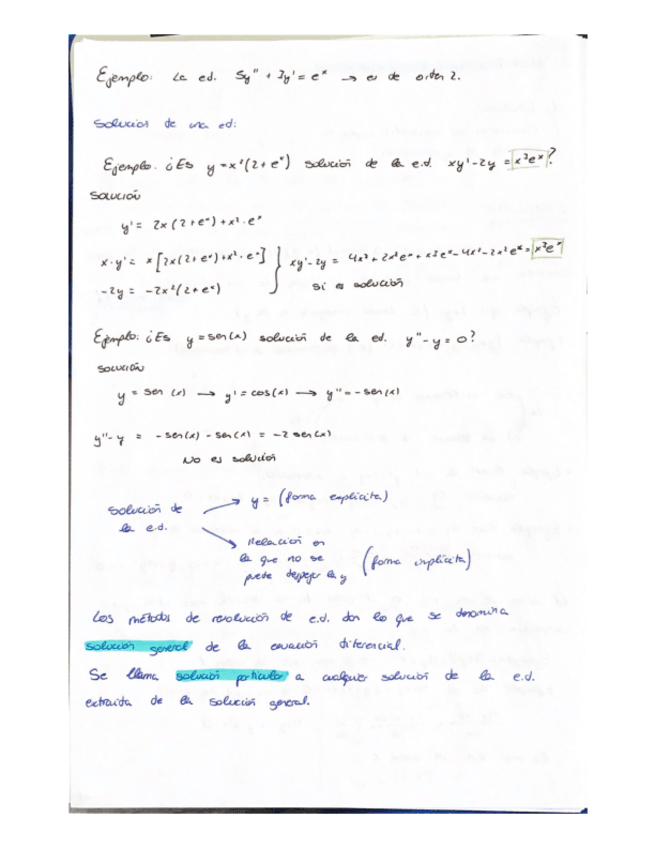 Ejemplo: La ed. 5y'' + 3y' = eˣ → es de orden 2.
Solución de una ed:
Ejemplo: ¿Es y = x²(2+eˣ) solución de la e.d. xy' - 2y = x³eˣ?
SOLUCIÓN
y' = 2x(2+eˣ)+x²·eˣ
x·y' = x[2x(2+eˣ)+x²·eˣ] } xy'-2y = 4x²+2x²eˣ+x³eˣ-4x²-2x²eˣ = x³eˣ
-2y = -2x²(2+eˣ) Sí es solución
Ejemplo: ¿Es y = sen(x) solución de la ed. y''-y=0?
SOLUCIÓN
y = sen (x) → y' = cos(x) → y'' = -sen(x)
y''-y = -sen(x) - sen(x) = -2 sen(x)
No es solución
Solución de la e.d. → y = (forma explícita)
→ Relación en
la que no se
puede despejar la y (forma implícita)
Los métodos de resolución de e.d. dan lo que se denomina
solución general de la ecuación diferencial.
Se llama solución particular a cualquier solución de la e.d.
extraída de la solución general.